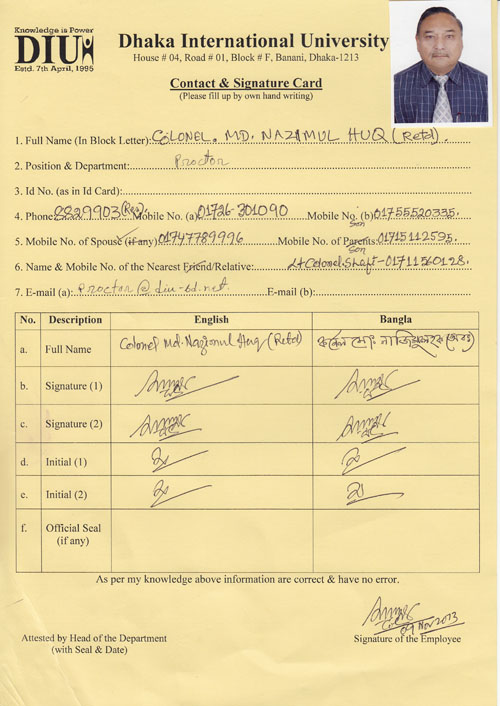 Knowledge is Power
DIU
Estd. 7th April, 1995
Dhaka International University
House # 04, Road # 01, Block # F, Banani, Dhaka-1213
Contact & Signature Card
(Please fill up by own hand writing)
1. Full Name (In Block Letter): COLONEL. MD. NAZAMUL HUQ (Retd).
2. Position & Department: Proctor
3. Id No. (as in Id Card):
4. Phone: 8829903 (Res) Mobile No. (a) 01726-301090 Mobile No. (b) 01755520335.
Son
5. Mobile No. of Spouse (if any) 01747789996 Mobile No. of Parents: 01715112595.
Son
6. Name & Mobile No. of the Nearest Friend/Relative: Lt Colonel Shafi - 01711560128.
7. E-mail (a): Proctor@diu-bd.net. E-mail (b):
No. Description English Bangla
a. Full Name Colonel Md. Nazmul Huq (Retd) কর্নেল মোঃ নাজমুল হক (অবঃ)
b. Signature (1)
c. Signature (2)
d. Initial (1)
e. Initial (2)
f. Official Seal
(if any)
As per my knowledge above information are correct & have no error.
09 Nov 2013
Attested by Head of the Department
(with Seal & Date)
Signature of the Employee